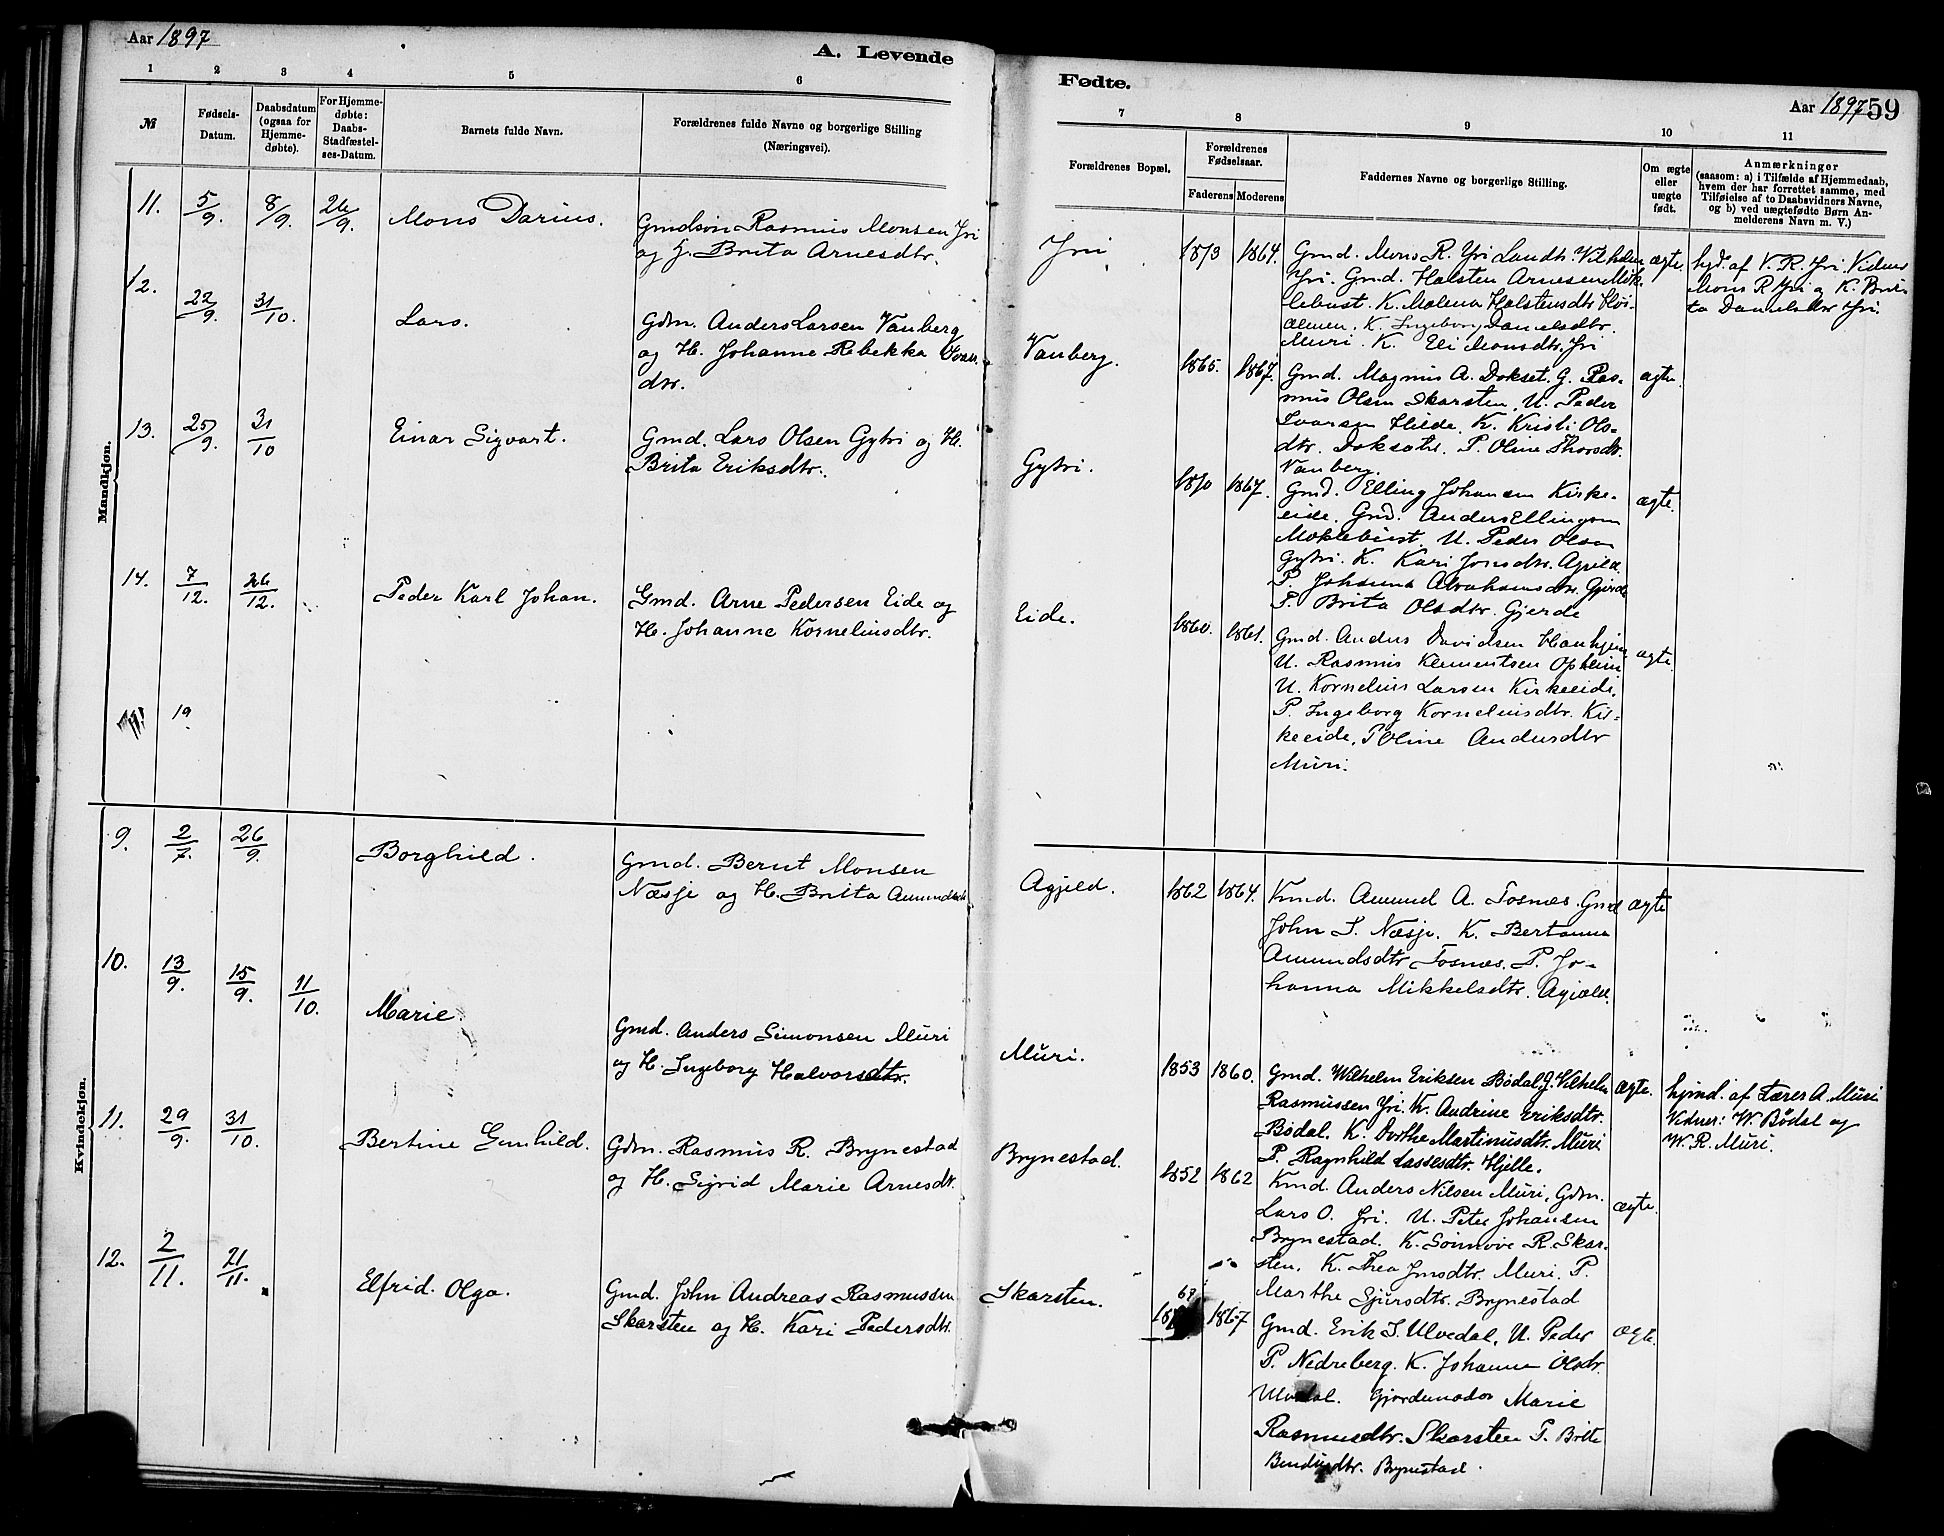 Aar 1897
A. Levende
1 2 3 4 5 6
№
Fødsels-
Datum.
Daabsdatum
(ogsaa for
Hjemme-
døbte).
For Hjemme-
døbte:
Daabs-
Stadfæstel-
ses-Datum.
Barnets fulde Navn.
Forældrenes fulde Navne og borgerlige Stilling
(Næringsvei).
Mandkjøn.
11. 5/9. 8/9. 26/9. Mons Darius.
Gmdsøn Rasmus Monsen Yri
og H. Brita Arnesdtr.
12. 22/9. 31/10. Lars.
Gdm. Anders Larsen Vanberg
og H. Johanne Rebekka Ivars
dtr.
13. 25/9. 31/10 Einar Sigvart.
Gmd. Lars Olsen Gytri og H.
Brita Eriksdtr.
14. 7/12. 26/12. Peder Karl Johan.
Gmd. Arne Pedersen Eide og
H. Johanne Korneliusdtr.
19
Kvindekjøn.
9. 2/7. 26/9. Borghild.
Gmd. Bernt Monsen
Næsje og H. Brita Amundsdtr
10. 13/9. 15/9. 11/10. Marie.
Gmd. Anders Simonsen Muri
og H. Ingeborg Halvorsdtr.
11. 29/9. 31/10. Bertine Gunhild.
Gdm. Rasmus R. Brynestad
og H. Sigrid Marie Arnesdtr.
12. 2/11. 21/11. Elfrid Olga.
Gmd. John Andreas Rasmussen
Skarsten og H. Kari Pedersdtr.
Fødte.
Aar 1897 59
7 8 9 10 11
Forældrenes Bopæl.
Forældrenes
Fødselsaar.
Faderens Moderens
Faddernes Navne og borgerlige Stilling.
Om ægte
eller
uægte
født.
Anmærkninger
(saasom: a) i Tilfælde af Hjemmedaab,
hvem der har forrettet samme, med
Tilføielse af to Daabsvidners Navne,
og b) ved uægtefødte Børn An-
melderens Navn m. V.)
Yri 1873 1864. Gmd. Mons R. Yri Landh. Vilhelm ægte. hjd. af V. R. Yri. Vidner
Yri. Gmd. Halsten Arnesen Mök- Mons R Yri og K. Bri-
lebust. K. Malena Halstensdtr Höi- ta Danielsdtr Yri.
almen. K. Ingeborg Danielsdtr.
Muri. K. Eli Monsdtr. Yri
Vanberg. 1865. 1867. Gmd. Magnus A. Dokset. G. Ras- ægte.
mus Olsen Skarsten. U. Peder
Ivarsen Hilde. K. Kristi Ols-
dtr. Doksæte. P. Oline
Vanberg.
Gytri. 1870 1867. Gmd. Elling Johansen Kirke- ægte.
eide. Gmd. Anders Ellingsen
Moklebust. U. Peder Olsen
Gytri. K. Kari Jonsdtr. Agjeld.
P. Johanna Abrahamsdtr. Gjerde
P. Brita Olsdtr. Gjerde
Eide. 1860. 1861. Gmd. Anders Davidsen Haahjem ægte.
U. Rasmus Klementsen Opheim
U. Kornelius Larsen Kirkeeide.
P. Ingeborg Korneliusdtr. Kir-
keeide. P Oline Andersdtr
Muri.
Agjeld. 1862 1864. Kmd. Amund A. Tosnæs. Gmd ægte
John S. Næsje. K. Bertanna
Amundsdtr Tosnæs. P. Jo-
hanna Mikkelsdtr. Agjæld.
Muri. 1853 1860. Gmd. Wilhelm Eriksen Bödal. G. Vilhelm ægte. hjmd. af Lærer A. Muri
Rasmussen Yri. K. Andrine Eriksdtr. Vidner: W. Bödal og
Bödal. K. Dorthe Martinusdtr. Muri W. R. Muri.
P. Ragnhild Lassesdtr. Hjelle.
Brynestad. 1852 1862 Kmd. Anders Nilsen Muri, Gdm. ægte.
Lars O. Yri. U. Peter Johansen
Brynestad. K. Sönnöve R. Skar-
sten, K. Thea Jonsdtr. Muri. P.
Marthe Sjursdtr. Brynestad
69
Skarsten. 18 1867 Gmd. Erik S. Ulvedal, U. Peder ægte.
P. Nedreberg. K. Johanne Olsdtr.
Ulvedal. Gjordemoder Marie
Rasmusdtr. Skarsten P. Brite
Bendiksdtr. Brynestad.